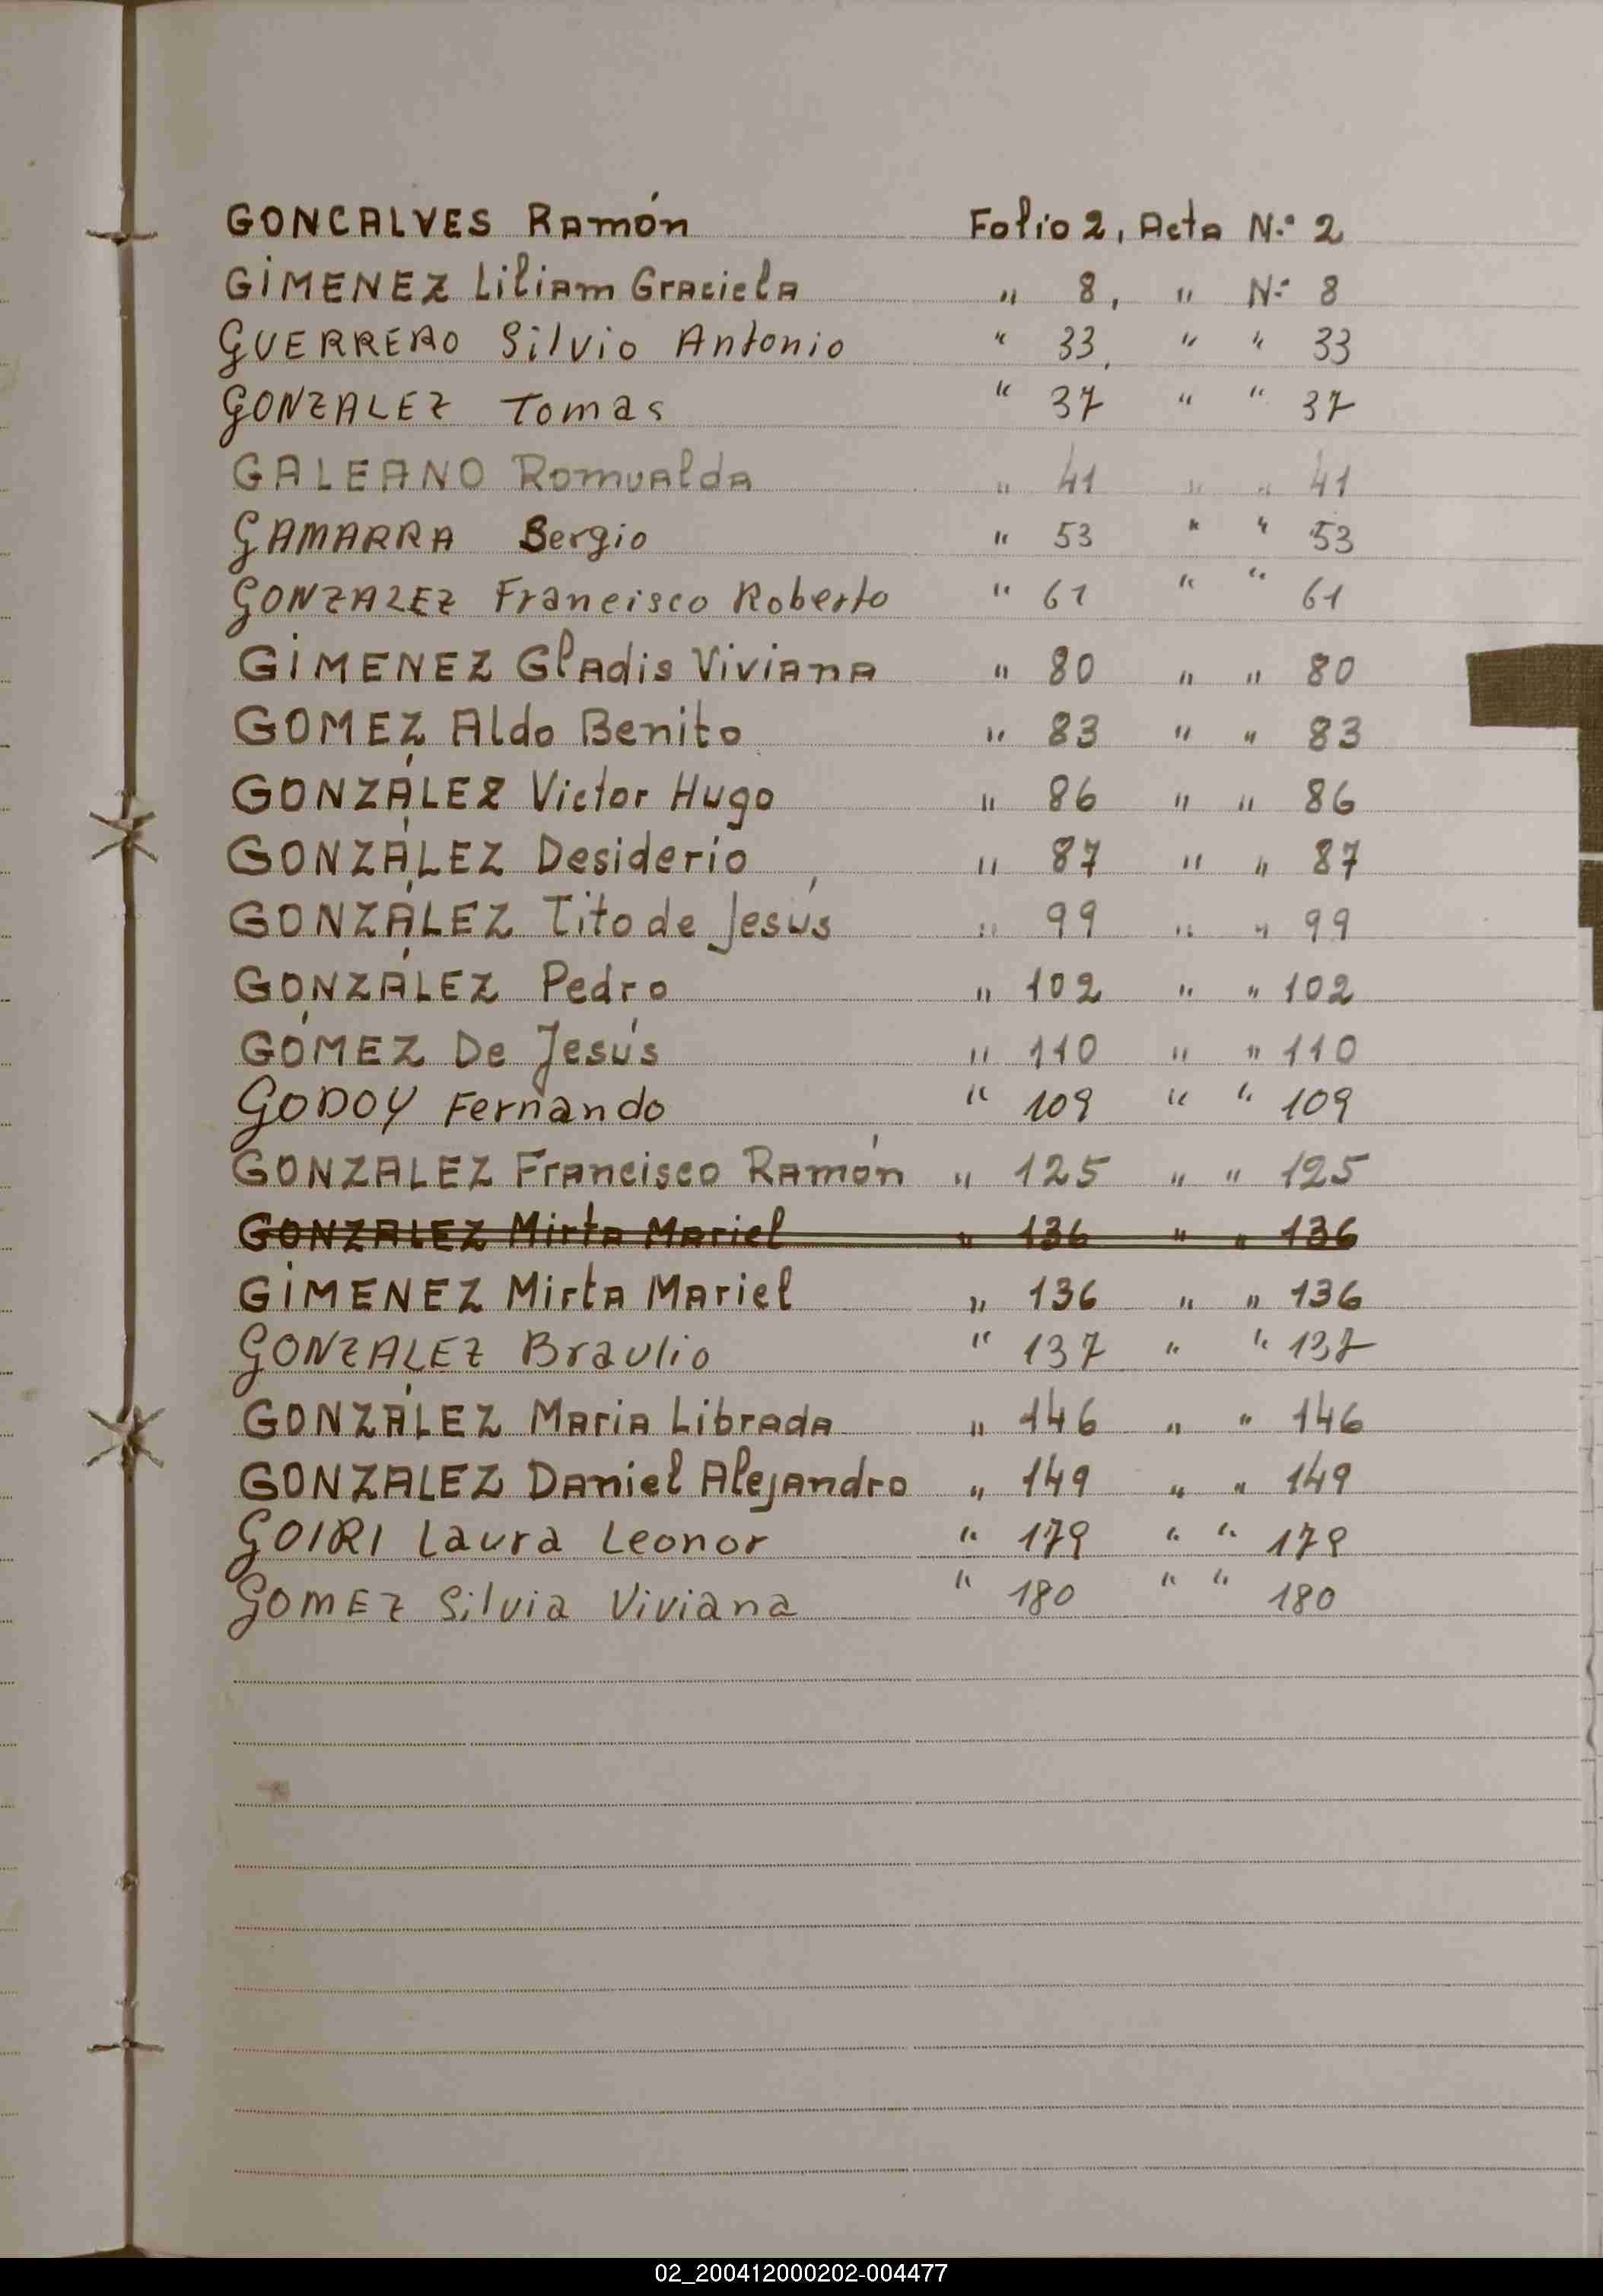 GONCALVES Ramón Folio 2, Acta N.º 2
GIMENEZ Liliam Graciela " 8, " N.º 8
GUERRERO Silvio Antonio " 33, " " 33
GONZALEZ Tomas " 37 " " 37
GALEANO Romualda " 41 " " 41
GAMARRA Sergio " 53 " " 53
GONZALEZ Francisco Roberto " 61 " " 61
GIMENEZ Gladis Viviana " 80 " " 80
GOMEZ Aldo Benito " 83 " " 83
GONZÁLEZ Victor Hugo " 86 " " 86
GONZÁLEZ Desiderio " 87 " " 87
GONZÁLEZ Tito de Jesús " 99 " " 99
GONZÁLEZ Pedro " 102 " " 102
GÓMEZ De Jesús " 110 " " 110
GODOY Fernando " 109 " " 109
GONZALEZ Francisco Ramón " 125 " " 125
GONZALEZ Mirta Mariel " 136 " " 136
GIMENEZ Mirta Mariel " 136 " " 136
GONZALEZ Braulio " 137 " " 137
GONZÁLEZ Maria Librada " 146 " " 146
GONZALEZ Daniel Alejandro " 149 " " 149
GOIRI Laura Leonor " 179 " " 179
GOMEZ Silvia Viviana " 180 " " 180
02_200412000202-004477